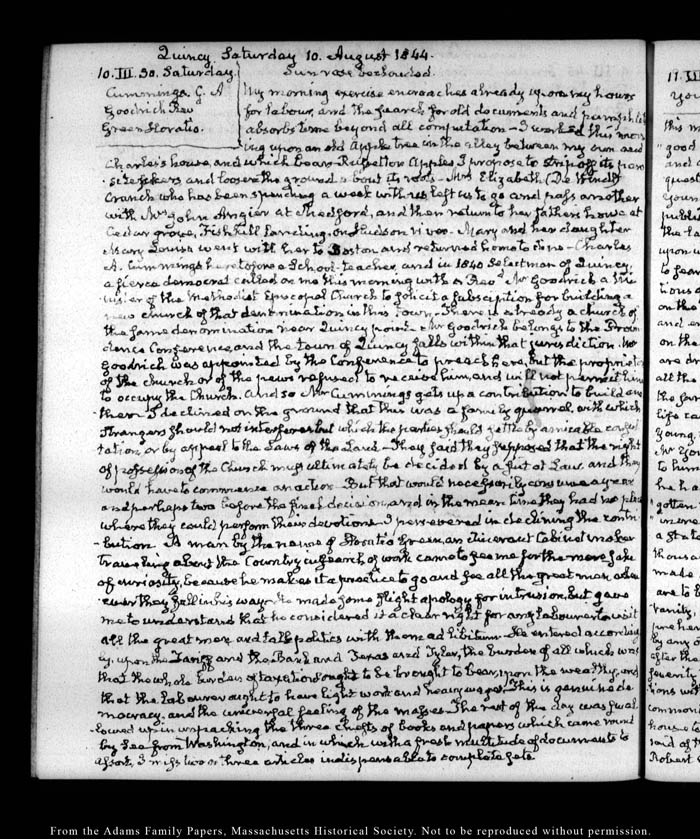 Quincy Saturday 10. August 1844.
10. III. 30. Saturday. Sun rose beclouded.
Cummings. C. A
Goodrich Rev
Green Horatio.
My morning exercise encroaches already upon my hours
for labour, and the search for old documents and pamphlets
absorbs time beyond all computation – I worked this morn-
ing upon an old Apple tree in the alley between my own and
Charles's house, and which bears Russetton Apples I propose to strip off its para-
site suckers and loosen the ground about its roots – Mrs Elizabeth (De Windt)
Cranch who has been spending a week with us left us to go and pass another
with Mrs John Angier at Medford, and then return to her fathers house at
Cedar grove, Fishkill Landing, on Hudson river. Mary and her daughter
Mary Louisa went with her to Boston and returned home to dine – Charles
A. Cummings heretofore a School-teacher, and in 1840 Selectman of Quincy,
a fierce democrat called on me this morning with a Revd Mr Goodrich a Mi-
nister of the Methodist Episcopal Church to solicit a subscription for building a
new church of that denomination in this town. There is already a church of
the same denomination near Quincy point. Mr Goodrich belongs to the Provi
dence Conference, and the town of Quincy falls within that jurisdiction. Mr
Goodrich was appointed by the Conference to preach here, but the proprietors
of the church or of the pews refused to receive him, and will not permit him
to occupy the Church. and so Mr Cummings gets up a contribution to build ano
ther – I declined on the ground that this was a family quarrel, with which
strangers should not interfere but which the parties should settle by amicable consul
tation, or by appeal to the Laws of the Land – They said they supposed that the right
of possession of the Church must ultimately be decided by a suit at Law, and they
would have to commence an action – But that would necessarily consume a year
and perhaps two before the final decision, and in the mean time they had no place
where they could perform their devotions. I persevered in declining the contri-
-bution. A man by the name of Horatio Green, an itinerant Cabinet maker
travelling about the Country in search of work came to see me for the mere sake
of curiosity, because he makes it a practice to go and see all the great men when
ever they fall in his way – He made some slight apology for intrusion, but gave
me to understand that he considered it a clear right for any labourer to visit
all the great men and talk politics with them ad libitum – He entered according
ly, upon the Tariff and the Bank and Texas and Tyler, the burden of all which was
that the whole burden of taxation ought to be brought to bear upon the wealthy, and
that the Labourer ought to have light work and heavy wages. This is genuine de
mocracy, and the universal feeling of the masses. The rest of the day was swal
lowed up in unpacking the three chests of books and papers which came round
by sea from Washington, and in which with a fresh multitude of documents to
assort, I miss two or three articles indispensable to complete sets.
From the Adams Family Papers, Massachusetts Historical Society. Not to be reproduced without permission.